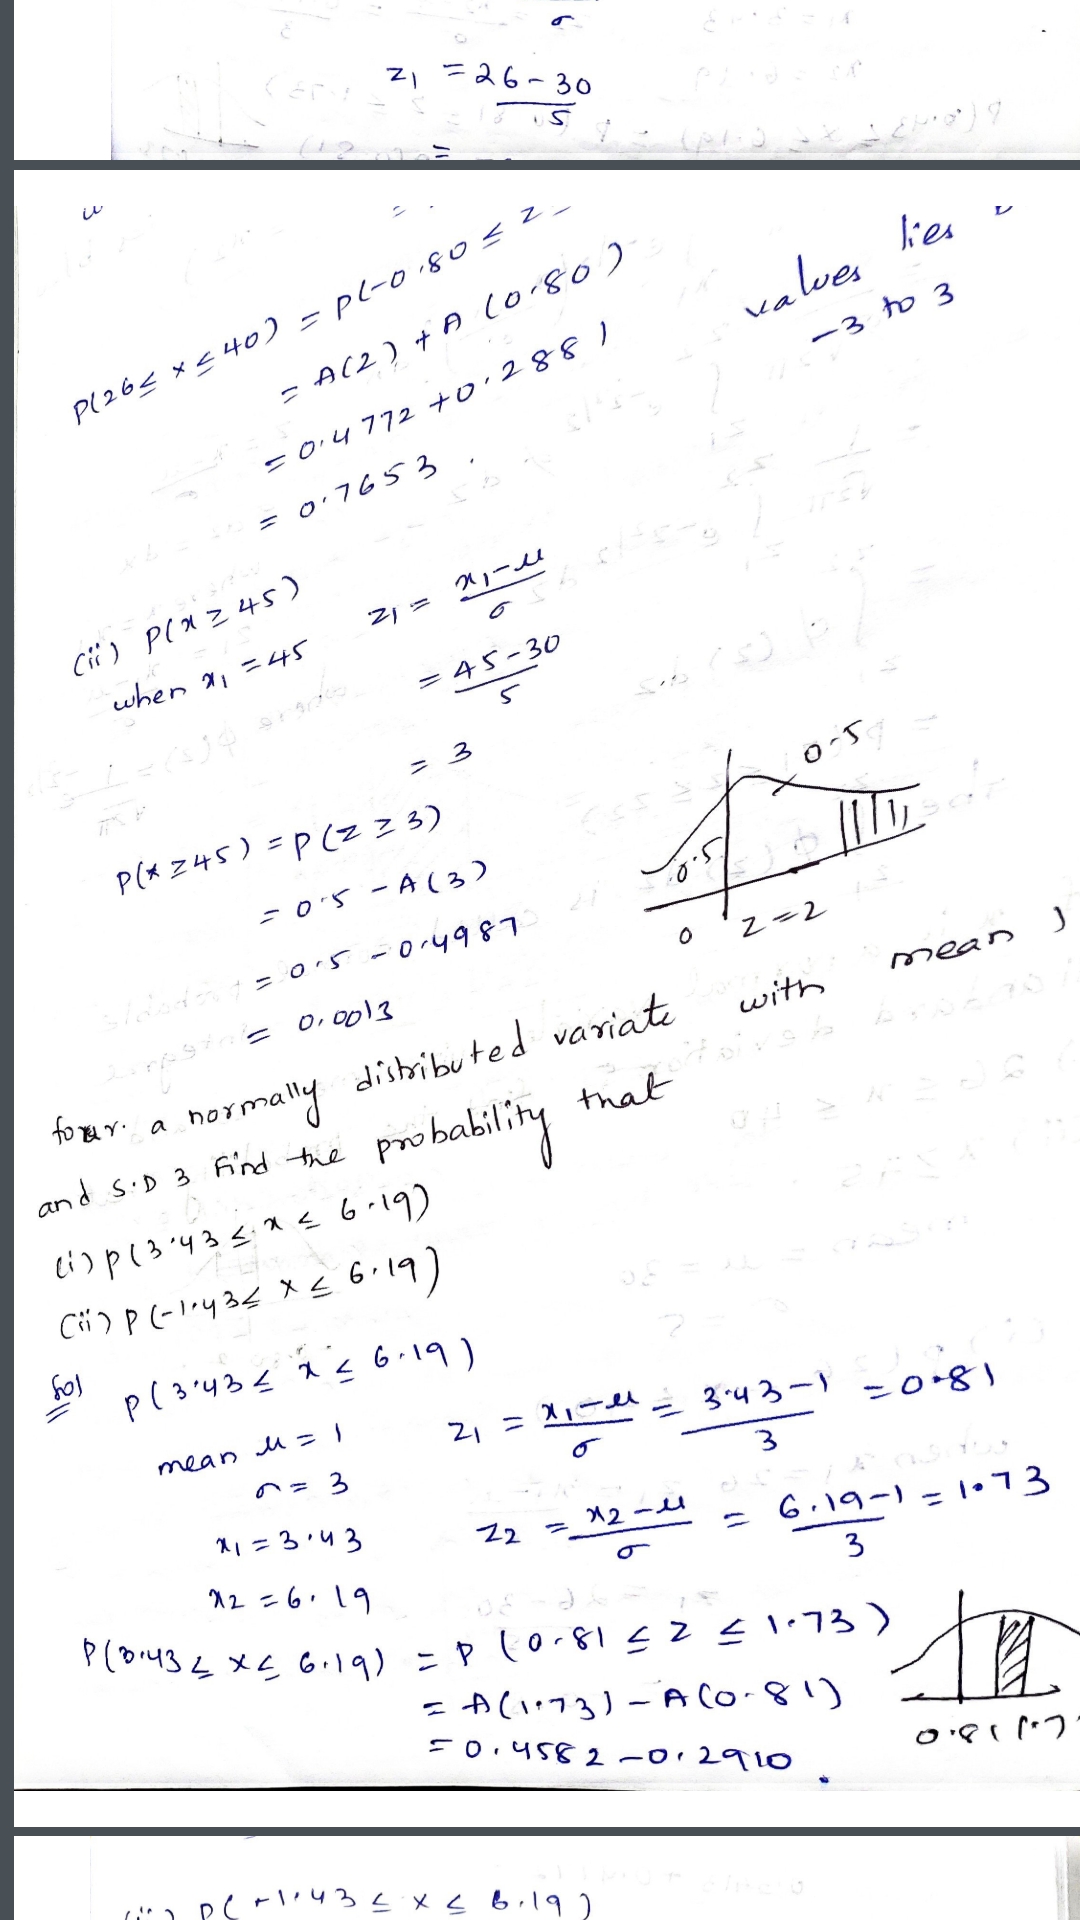 σ
z₁ = 26-30
5
=
P(26≤ x ≤ 40) = P(-0.80 ≤ z
= A(2) + A(0.80)
= 0.4772 + 0.2881
= 0.7653.
values lies
-3 to 3
(ii) P(x ≥ 45)
when x₁ = 45
z₁ = x₁-μ
σ
= 45-30
5
= 3
P(x ≥ 45) = P(z ≥ 3)
= 0.5 - A(3)
= 0.5 - 0.4987
= 0.0013
0.5
0.5
0 z=2
a normally distributed variate with mean 1
and S.D 3 Find the probability that
(i) P(3.43 ≤ x ≤ 6.19)
(ii) P(-1.43≤ x ≤ 6.19)
Sol P(3.43 ≤ x ≤ 6.19)
mean μ = 1
σ = 3
x₁ = 3.43
x₂ = 6.19
z₁ = x₁-μ = 3.43-1 = 0.81
σ 3
z₂ = x₂-μ = 6.19-1 = 1.73
σ 3
P(3.43 ≤ x ≤ 6.19) = P(0.81 ≤ z ≤ 1.73)
= A(1.73) - A(0.81)
= 0.4582 - 0.2910.
0.81 1.7
(ii) P(-1.43 ≤ x ≤ 6.19)